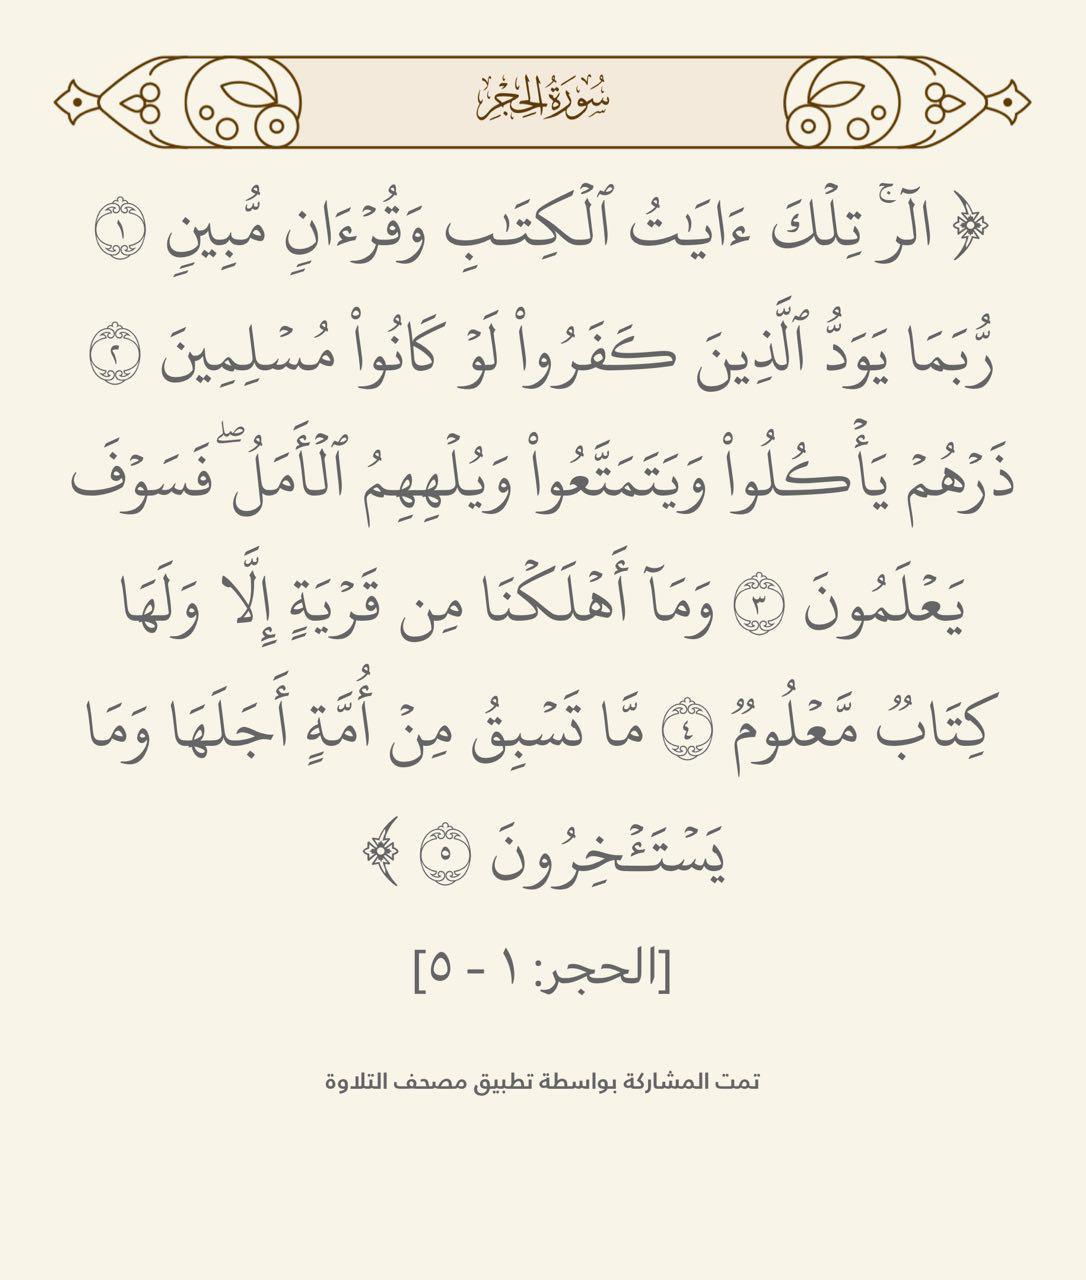 سُورَةُ الحِجْرِ
﴿ الٓرۚ تِلۡكَ ءَايَٰتُ ٱلۡكِتَٰبِ وَقُرۡءَانٖ مُّبِينٖ ١
رُّبَمَا يَوَدُّ ٱلَّذِينَ كَفَرُواْ لَوۡ كَانُواْ مُسۡلِمِينَ ٢
ذَرۡهُمۡ يَأۡكُلُواْ وَيَتَمَتَّعُواْ وَيُلۡهِهِمُ ٱلۡأَمَلُۖ فَسَوۡفَ
يَعۡلَمُونَ ٣ وَمَآ أَهۡلَكۡنَا مِن قَرۡيَةٍ إِلَّا وَلَهَا
كِتَابٞ مَّعۡلُومٞ ٤ مَّا تَسۡبِقُ مِنۡ أُمَّةٍ أَجَلَهَا وَمَا
يَسۡتَـٔۡخِرُونَ ٥ ﴾
[الحجر: ١ - ٥]
تمت المشاركة بواسطة تطبيق مصحف التلاوة